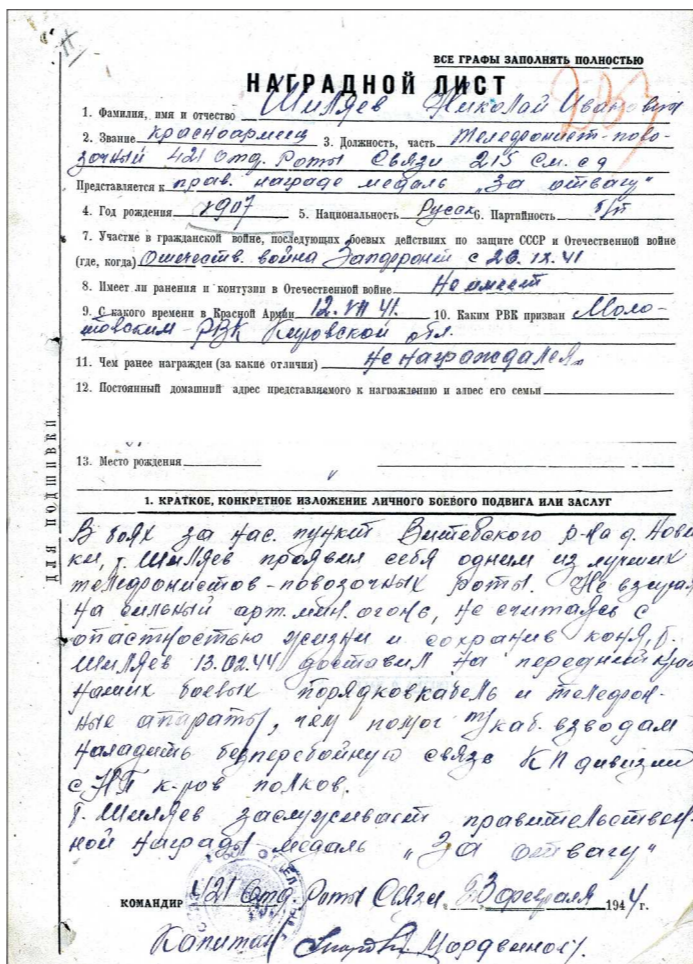 ВСЕ ГРАФЫ ЗАПОЛНЯТЬ ПОЛНОСТЬЮ
НАГРАДНОЙ ЛИСТ
1. Фамилия, имя и отчество Шиляев Николай Иванович
2. Звание Красноармеец 3. Должность, часть Телефонист-пово-
зочный 421 Отд. Роты Связи 215 См. сд
Представляется к прав. награде медаль „За отвагу"
4. Год рождения 1907 5. Национальность Русск 6. Партийность б/п
7. Участие в гражданской войне, последующих боевых действиях по защите СССР и Отечественной войне
(где, когда) Отечеств. война Запфронт с 26.IX.41
8. Имеет ли ранения и контузии в Отечественной войне Не имеет
9. С какого времени в Красной Армии 12.VII 41. 10. Каким РВК призван Моло-
товским РВК Кировской обл.
11. Чем ранее награжден (за какие отличия) не награждался
12. Постоянный домашний адрес представляемого к награждению и адрес его семьи
13. Место рождения
1. КРАТКОЕ, КОНКРЕТНОЕ ИЗЛОЖЕНИЕ ЛИЧНОГО БОЕВОГО ПОДВИГА ИЛИ ЗАСЛУГ
В боях за нас. пункт Витебского р-на д. Нови
ки, т. Шиляев проявил себя одним из лучших
телефонистов-повозочных роты. Не взирая
на сильный арт. мин. огонь, не считаясь с
опастностью жизни и сохранив коня, т.
Шиляев 13.02.44 доставил на передний край
наших боевых порядков кабель и телефон-
ные апараты, чем помог каб. взводам
наладить безперебойную связь КП дивизии
с НП к-ров полков.
Т. Шиляев заслуживает правительствен-
ной награды медаль „За отвагу"
КОМАНДИР 421 Отд. Роты Связи 23 февраля 1944 г.
Капитан
ДЛЯ ПОДШИВКИ